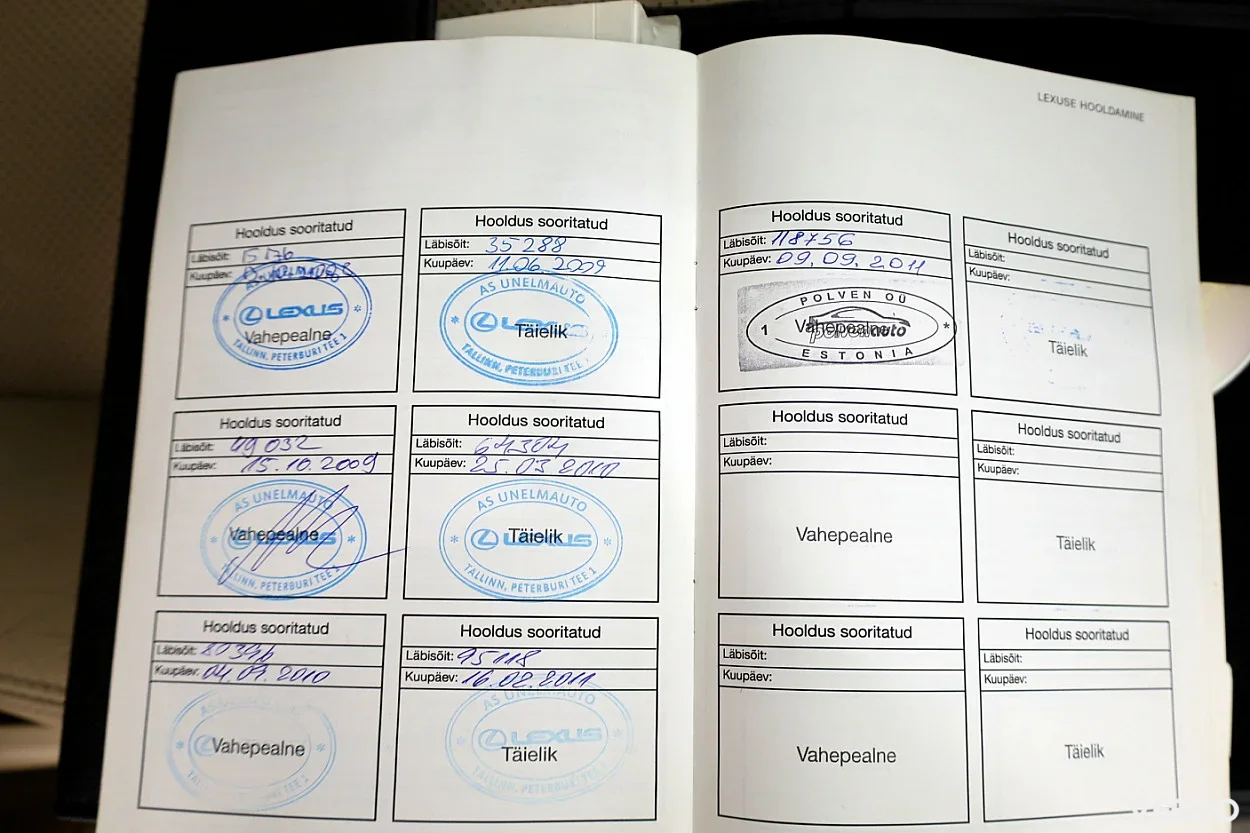 LEXUSE HOOLDAMINE
Hooldus sooritatud
Läbisõit:
Kuupäev:
LEXUS
Vahepealne
TALLINN, PETERBURI TEE 1
Hooldus sooritatud
Läbisõit: 35 288
Kuupäev: 11.06.2009
AS UNELMAUTO
LEXUS
Täielik
TALLINN, PETERBURI TEE 1
Hooldus sooritatud
Läbisõit: 49 032
Kuupäev: 15.10.2009
AS UNELMAUTO
LEXUS
Vahepealne
TALLINN, PETERBURI TEE 1
Hooldus sooritatud
Läbisõit: 64304
Kuupäev: 25.03 2010
AS UNELMAUTO
LEXUS
Täielik
TALLINN, PETERBURI TEE 1
Hooldus sooritatud
Läbisõit:
Kuupäev: 04.09.2010
Vahepealne
Hooldus sooritatud
Läbisõit: 95118
Kuupäev: 16.02.2011
AS UNELMAUTO
LEXUS
Täielik
Hooldus sooritatud
Läbisõit: 118756
Kuupäev: 09.09.2011
POLVEN OÜ
1 Vahepealne auto *
ESTONIA
Hooldus sooritatud
Läbisõit:
Kuupäev:
Täielik
Hooldus sooritatud
Läbisõit:
Kuupäev:
Vahepealne
Hooldus sooritatud
Läbisõit:
Kuupäev:
Täielik
Hooldus sooritatud
Läbisõit:
Kuupäev:
Vahepealne
Hooldus sooritatud
Läbisõit:
Kuupäev:
Täielik